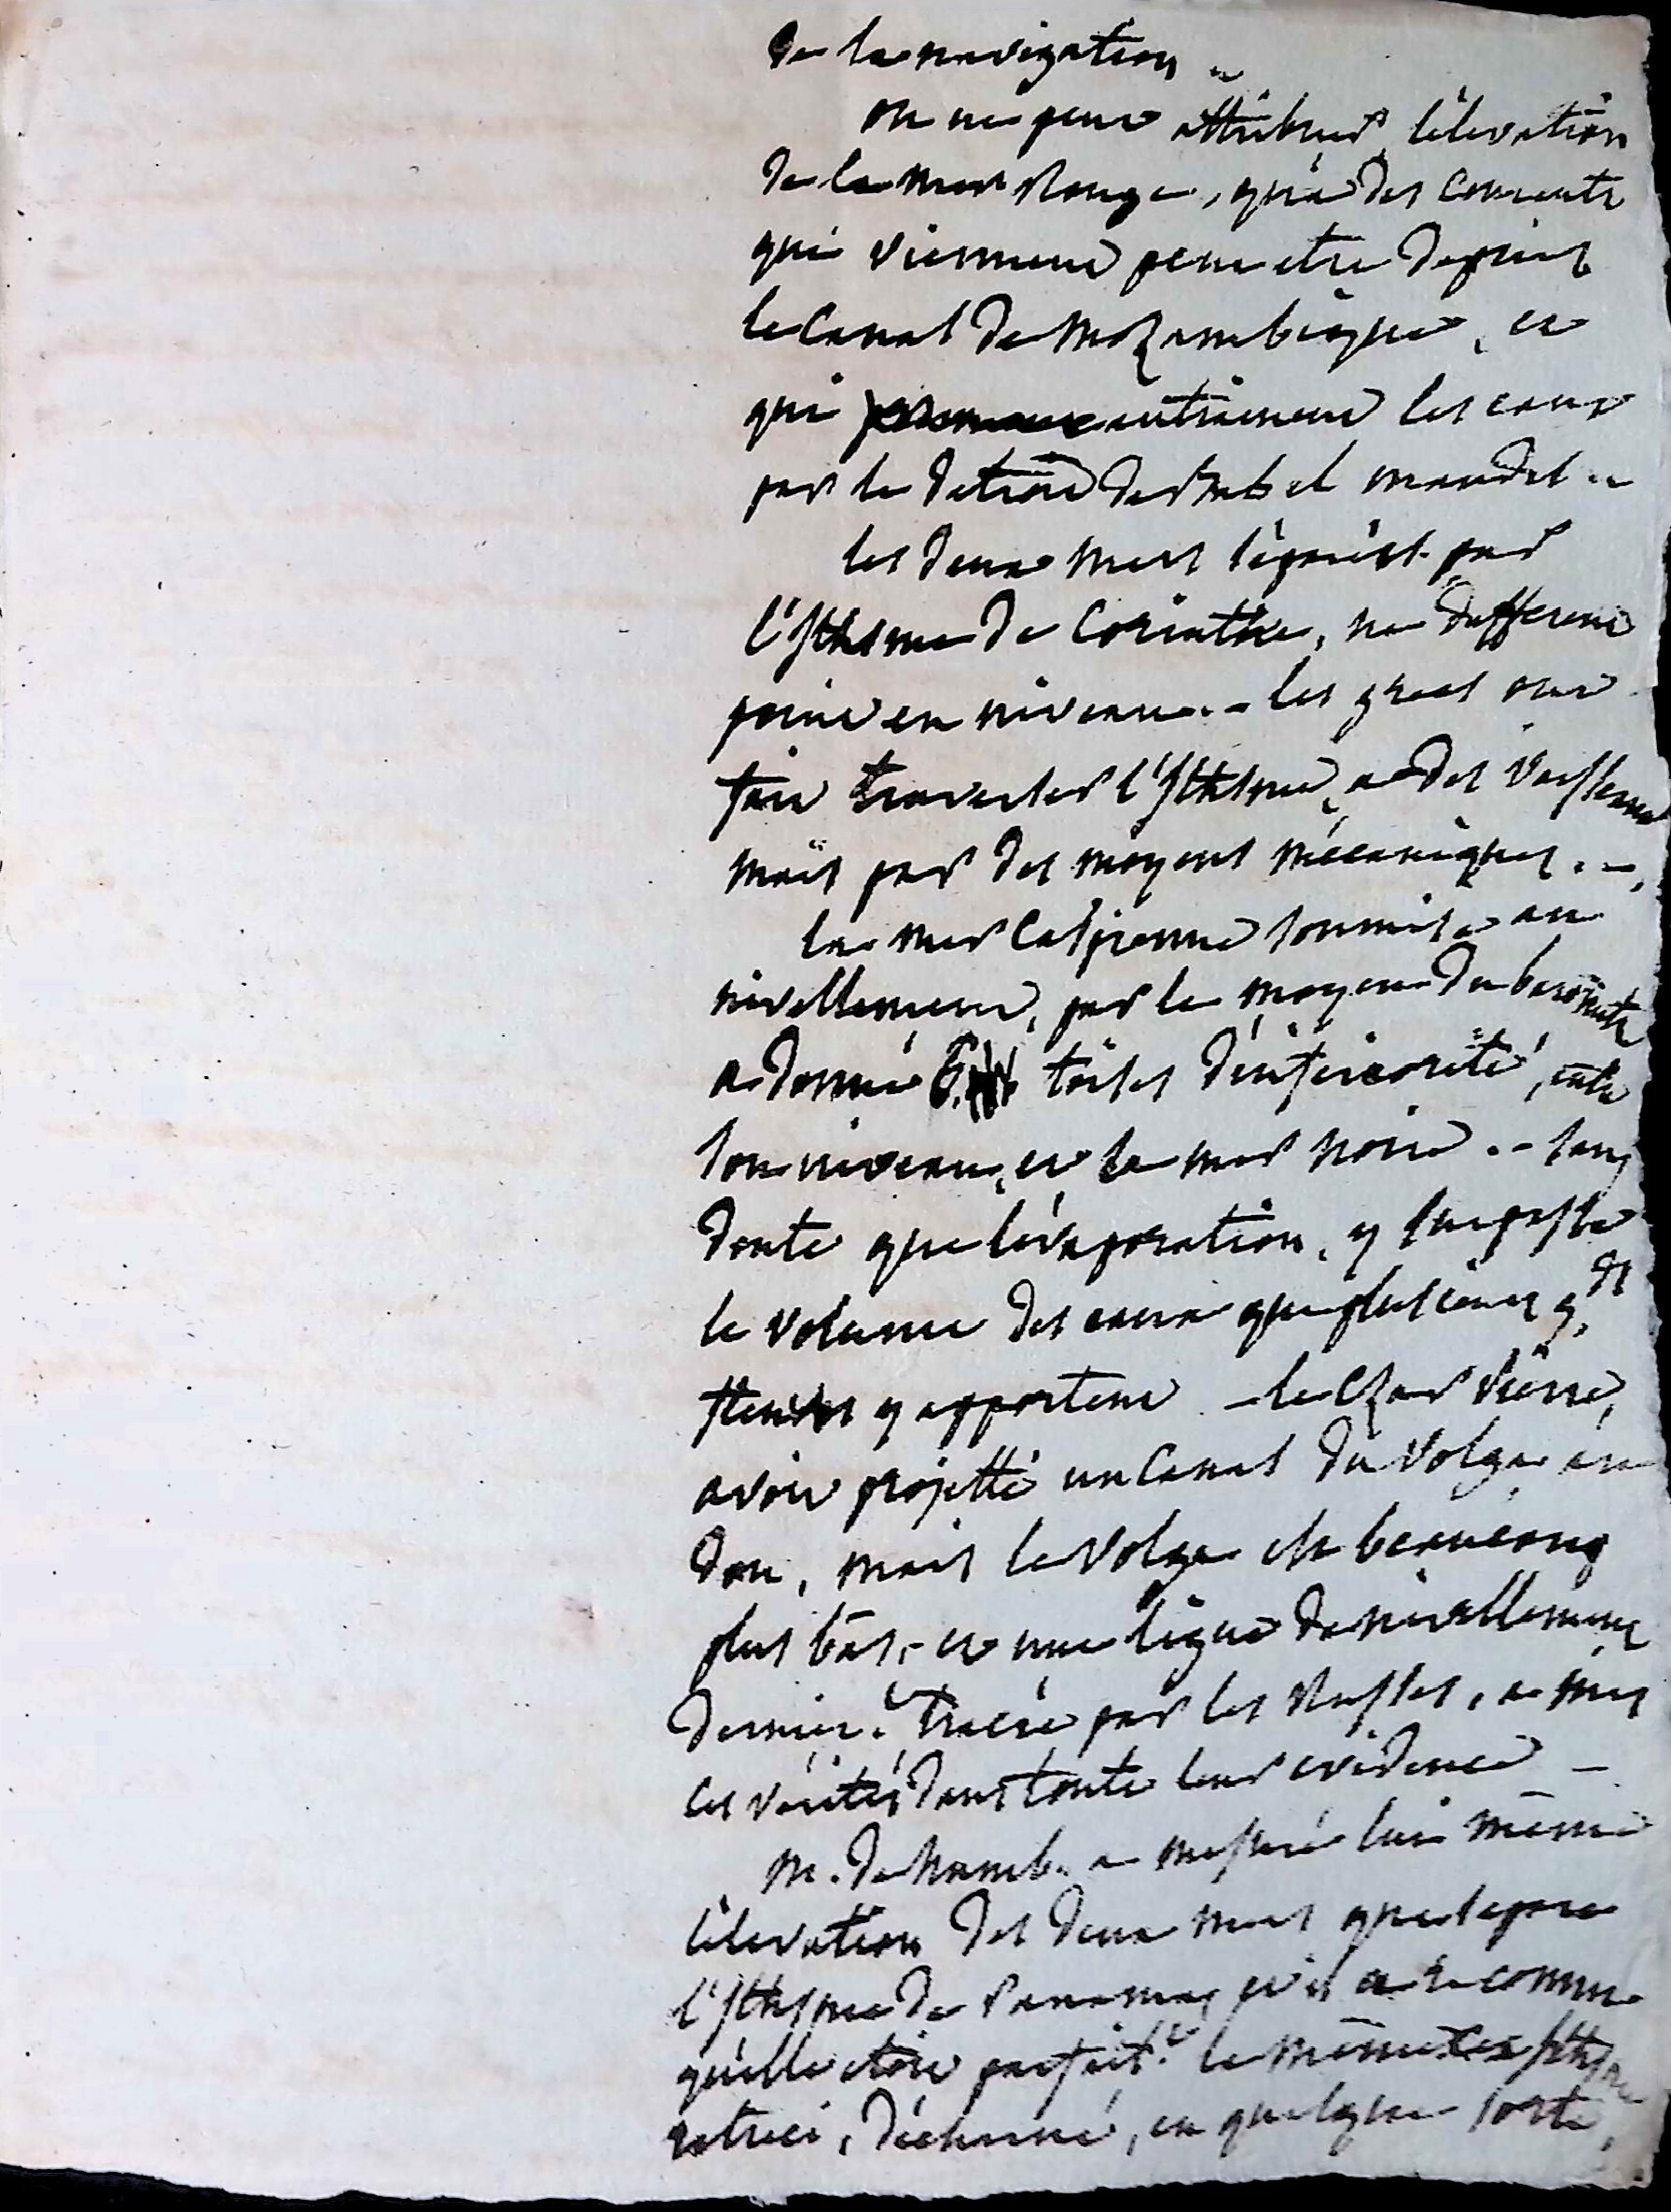 de la navigation ..
on ne peut attribuer l'élevation
de la mer Rouge, qu'à des courants
qui viennent peut etre depuis
le Canal de Mozambique, et
qui entrainent les eaux
par le détroit de Bab el mandel ..
les deux mers séparées par
l'Isthme de Corinthe, ne different
point en niveau. - les grecs ont
fait traverser l'Isthme, a des vaisseaux
mais par des moyens mécaniques. -
la mer Caspienne soumise au
nivellement, par le moyen du baromètre
a donné toises d'inferiorité, entre
son niveau, et la mer noire. - sans
doute que l'évaporation, y surpasse
le volume des eaux que plusieurs g.ds
fleuves y apportent. - le Czar Pierre,
avoit projetté un canal du Volga au
don, mais le Volga est beaucoup
plus bas, - et une ligne de nivellement
dernier.t tracée par les Russes, a mis
ces vérités dans toute leur evidence -
M. de humb. a mesuré lui même
l'élevation des deux mers que separe
l'Isthme de Panama, et il a reconnu
qu'elle étoit parfait.t la même cet Isthme
retreci, décharné, en quelque sorte,